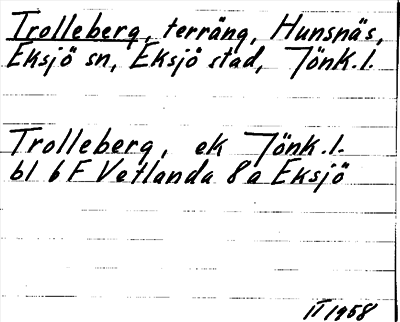 Trolleberg, terräng, Hunsnäs,
Eksjö sn, Eksjö stad, Jönk.l.
Trolleberg, ek Jönk.l.
bl 6F Vetlanda 8a Eksjö
II 1958